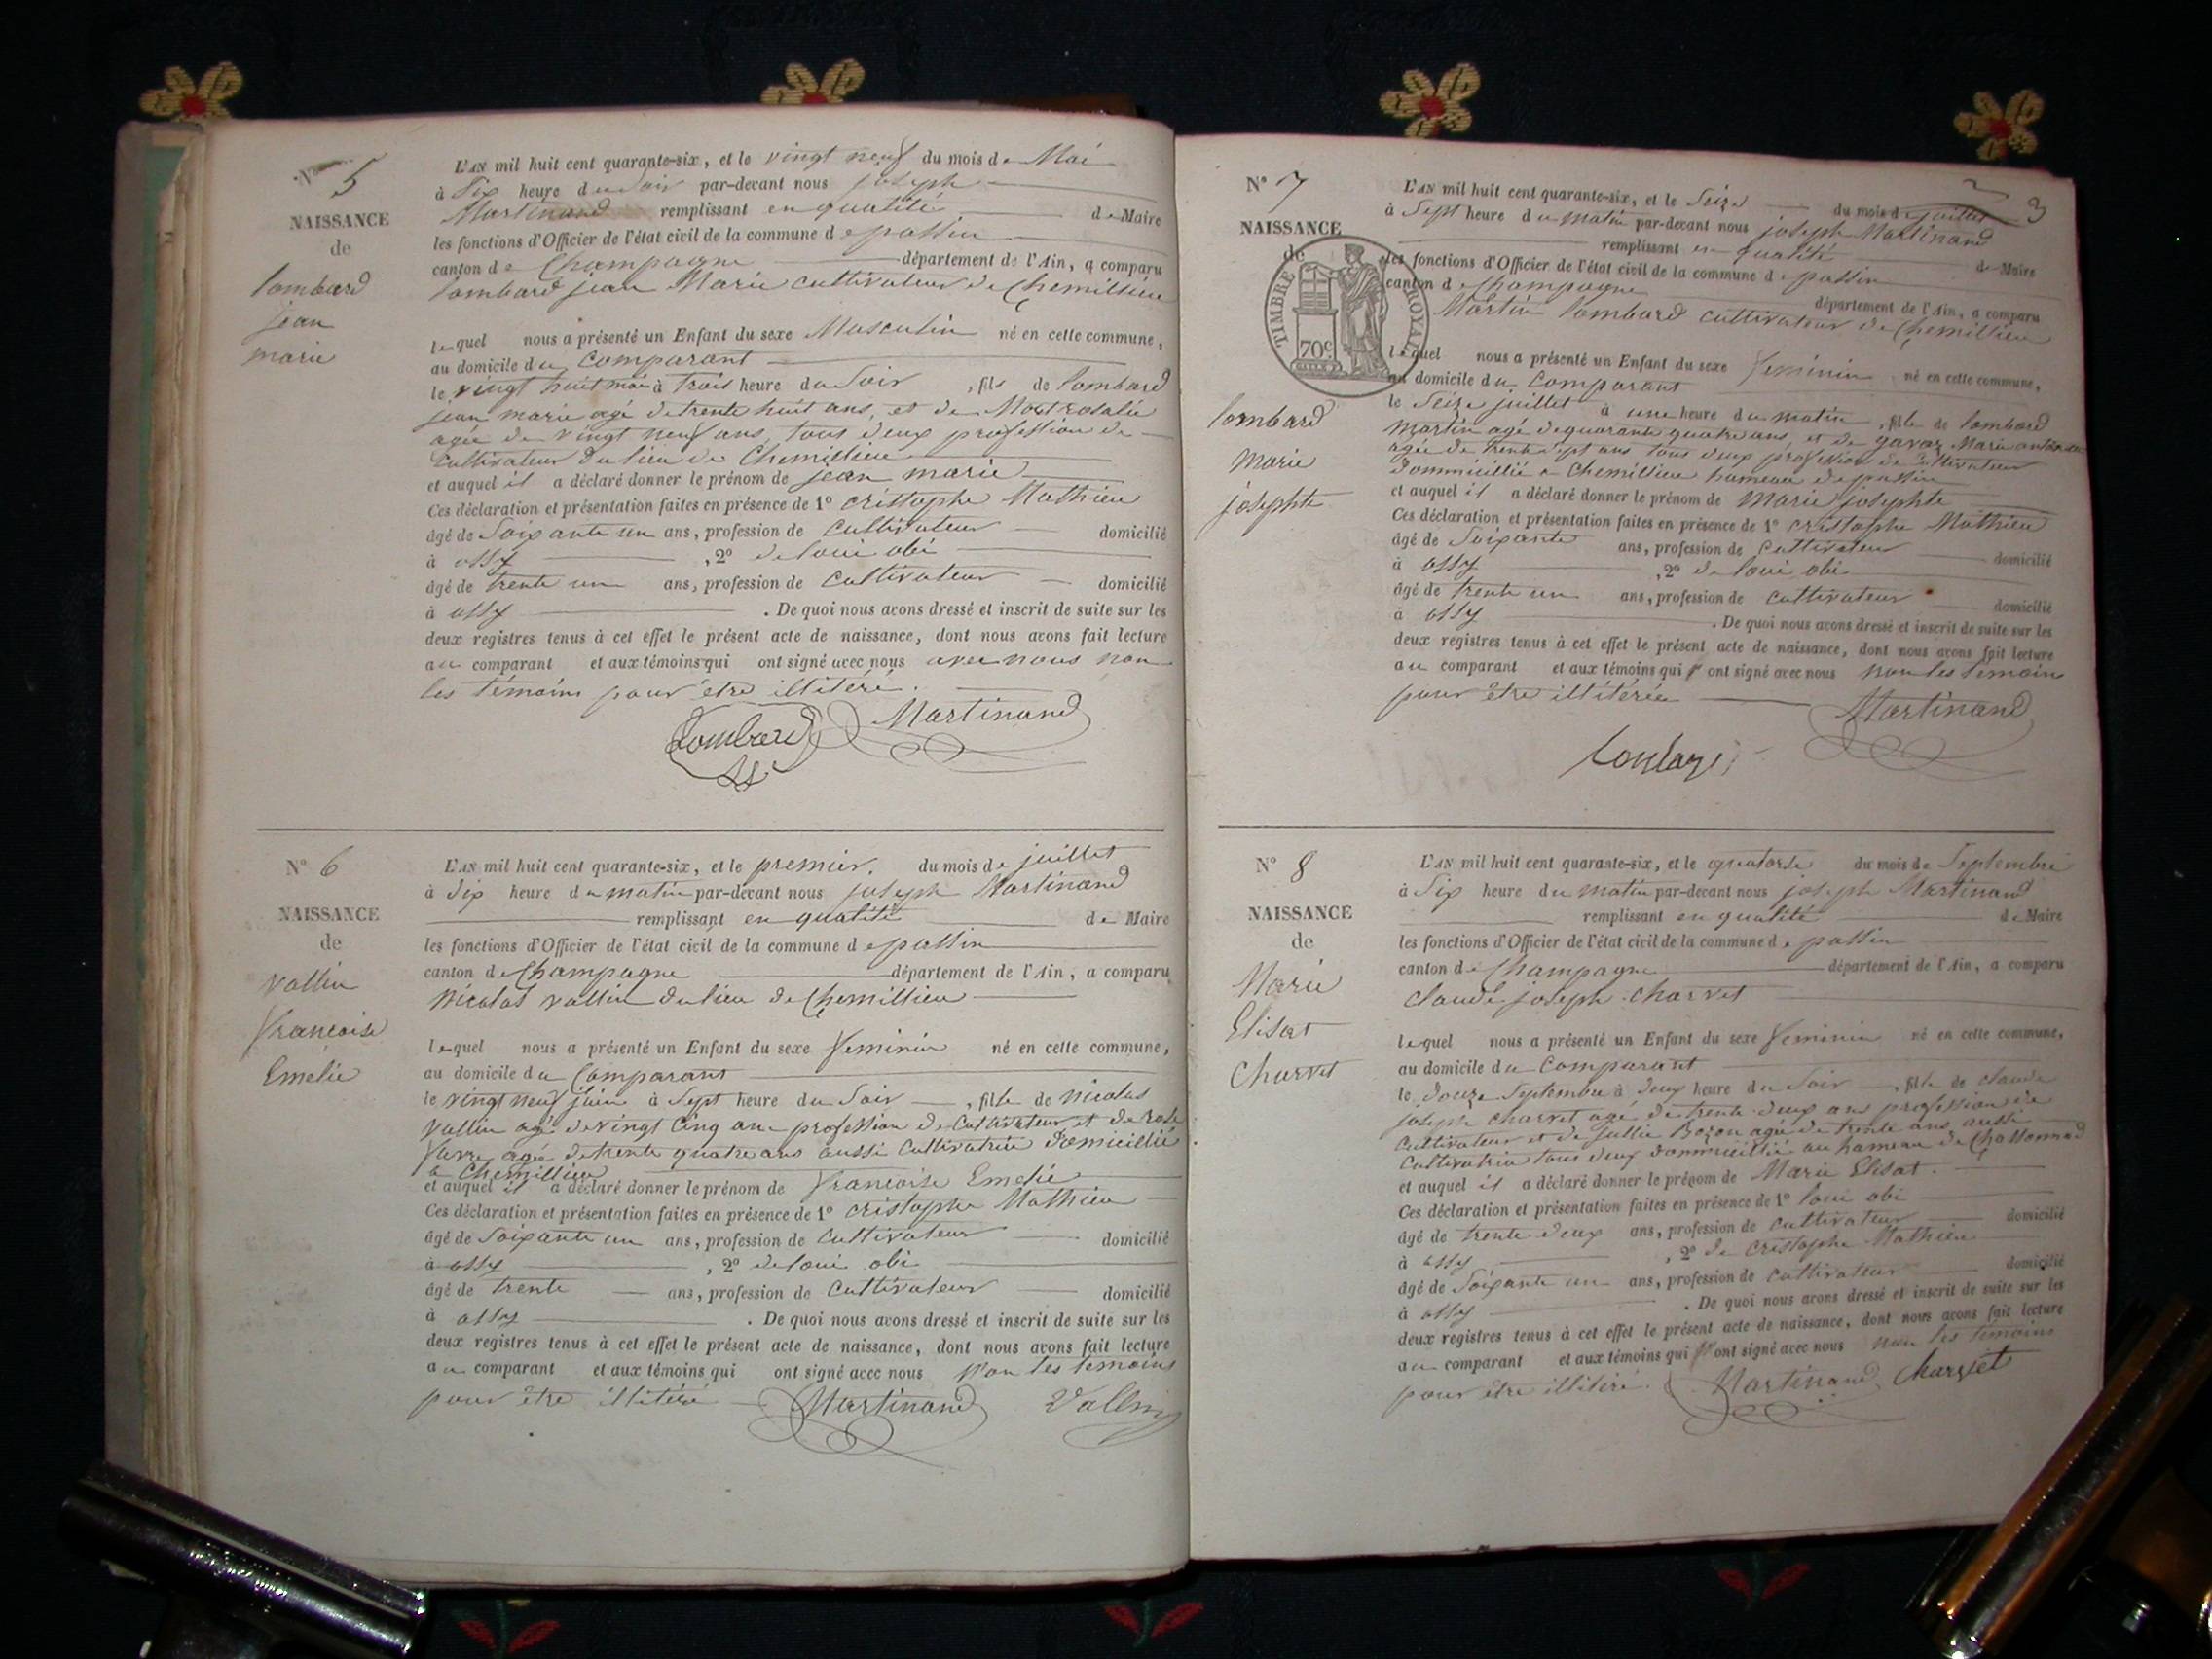 N° 5
NAISSANCE
de
lombard
jean
marie
L'AN mil huit cent quarante-six, et le vingt neuf du mois de Mai
à Six heure du Soir par-devant nous joseph
Martinand remplissant en qualité de Maire
les fonctions d'Officier de l'état civil de la commune de passin
canton de Champagne département de l'Ain, a comparu
lombard jean Marie cultivateur de Chemillieu
lequel nous a présenté un Enfant du sexe Masculin né en cette commune,
au domicile du Comparant
le vingt huit mai à trois heure du Soir, fils de lombard
jean marie agé de trente huit ans, et de Mortrosalie
agée de vingt neuf ans, tous deux profession de
Cultivateur du lieu de Chemillieu
et auquel il a déclaré donner le prénom de jean marie
Ces déclaration et présentation faites en présence de 1° cristophe Mathieu
âgé de Soixante un ans, profession de Cultivateur domicilié
à ossy, 2° de loui obi
âgé de trente un ans, profession de Cultivateur domicilié
à ossy. De quoi nous avons dressé et inscrit de suite sur les
deux registres tenus à cet effet le présent acte de naissance, dont nous avons fait lecture
au comparant et aux témoins qui ont signé avec nous avec nous non
les témoins pour être illitéré.
Lombard Martinand
N° 6
NAISSANCE
de
vallin
francoise
Emelie
L'AN mil huit cent quarante-six, et le premier. du mois de juillet
à Six heure du matin par-devant nous joseph Martinand
remplissant en qualité de Maire
les fonctions d'Officier de l'état civil de la commune de passin
canton de Champagne département de l'Ain, a comparu
Nicolas vallin du lieu de Chemillieu
lequel nous a présenté un Enfant du sexe feminin né en cette commune,
au domicile du Comparant
le vingt neuf juin à Sept heure du Soir, fille de nicolas
vallin agé de vingt Cinq ans profession de Cultivateur et de rose
favre agée de trente quatre ans aussi Cultivatrice Domicillié
a Chemillieu
et auquel il a déclaré donner le prénom de francoise Emelie
Ces déclaration et présentation faites en présence de 1° cristophe Mathieu
âgé de Soixante un ans, profession de Cultivateur domicilié
à ossy, 2° de loui obi
âgé de trente ans, profession de Cultivateur domicilié
à ossy. De quoi nous avons dressé et inscrit de suite sur les
deux registres tenus à cet effet le présent acte de naissance, dont nous avons fait lecture
au comparant et aux témoins qui ont signé avec nous Non les temoins
pour être illitéré Martinand Vallin
3
N° 7
NAISSANCE
de
TIMBRE ROYAL
70c
lombard
Marie
josephte
L'AN mil huit cent quarante-six, et le Seize du mois de juillet
à Sept heure du matin par-devant nous joseph Martinand
remplissant en qualité de Maire
les fonctions d'Officier de l'état civil de la commune de passin
canton de Champagne département de l'Ain, a comparu
Martin lombard cultivateur de Chemillieu
lequel nous a présenté un Enfant du sexe feminin né en cette commune,
au domicile du Comparant
le Seize juillet à une heure du matin, fille de lombard
Martin agé de quarante quatre ans, et de Marie
agée de trente sept ans tous deux profession de Cultivateur
Dommicillié a Chemillieu hameau de passin
et auquel il a déclaré donner le prénom de Marie josephte
Ces déclaration et présentation faites en présence de 1° cristophe Mathieu
âgé de Soixante ans, profession de Cultivateur domicilié
à ossy, 2° de loui obi
âgé de trente un ans, profession de Cultivateur domicilié
à ossy. De quoi nous avons dressé et inscrit de suite sur les
deux registres tenus à cet effet le présent acte de naissance, dont nous avons fait lecture
au comparant et aux témoins qui ont signé avec nous non les temoins
pour être illitérée Martinand
N° 8
NAISSANCE
de
Marie
Elisat
Charvet
L'AN mil huit cent quarante-six, et le quatorse du mois de Septembre
à Six heure du matin par-devant nous joseph Martinand
remplissant en qualité de Maire
les fonctions d'Officier de l'état civil de la commune de passin
canton de Champagne département de l'Ain, a comparu
claude joseph charvet
lequel nous a présenté un Enfant du sexe feminin né en cette commune,
au domicile du Comparant
le Douze Septembre à deux heure du Soir, fille de claude
joseph charvet agé de trente deux ans profession de
Cultivateur et de Jullie Bozon agée de trente ans aussi
Cultivatrice tous deux dommicillié au hameau de
et auquel il a déclaré donner le prénom de Marie Elisat.
Ces déclaration et présentation faites en présence de 1° loui obi
âgé de trente deux ans, profession de Cultivateur domicilié
à ossy, 2° de cristophe Mathieu
âgé de Soixante un ans, profession de Cultivateur domicilié
à ossy. De quoi nous avons dressé et inscrit de suite sur les
deux registres tenus à cet effet le présent acte de naissance, dont nous avons fait lecture
au comparant et aux témoins qui ont signé avec nous non les temoins
pour être illitéré. Martinand Charvet